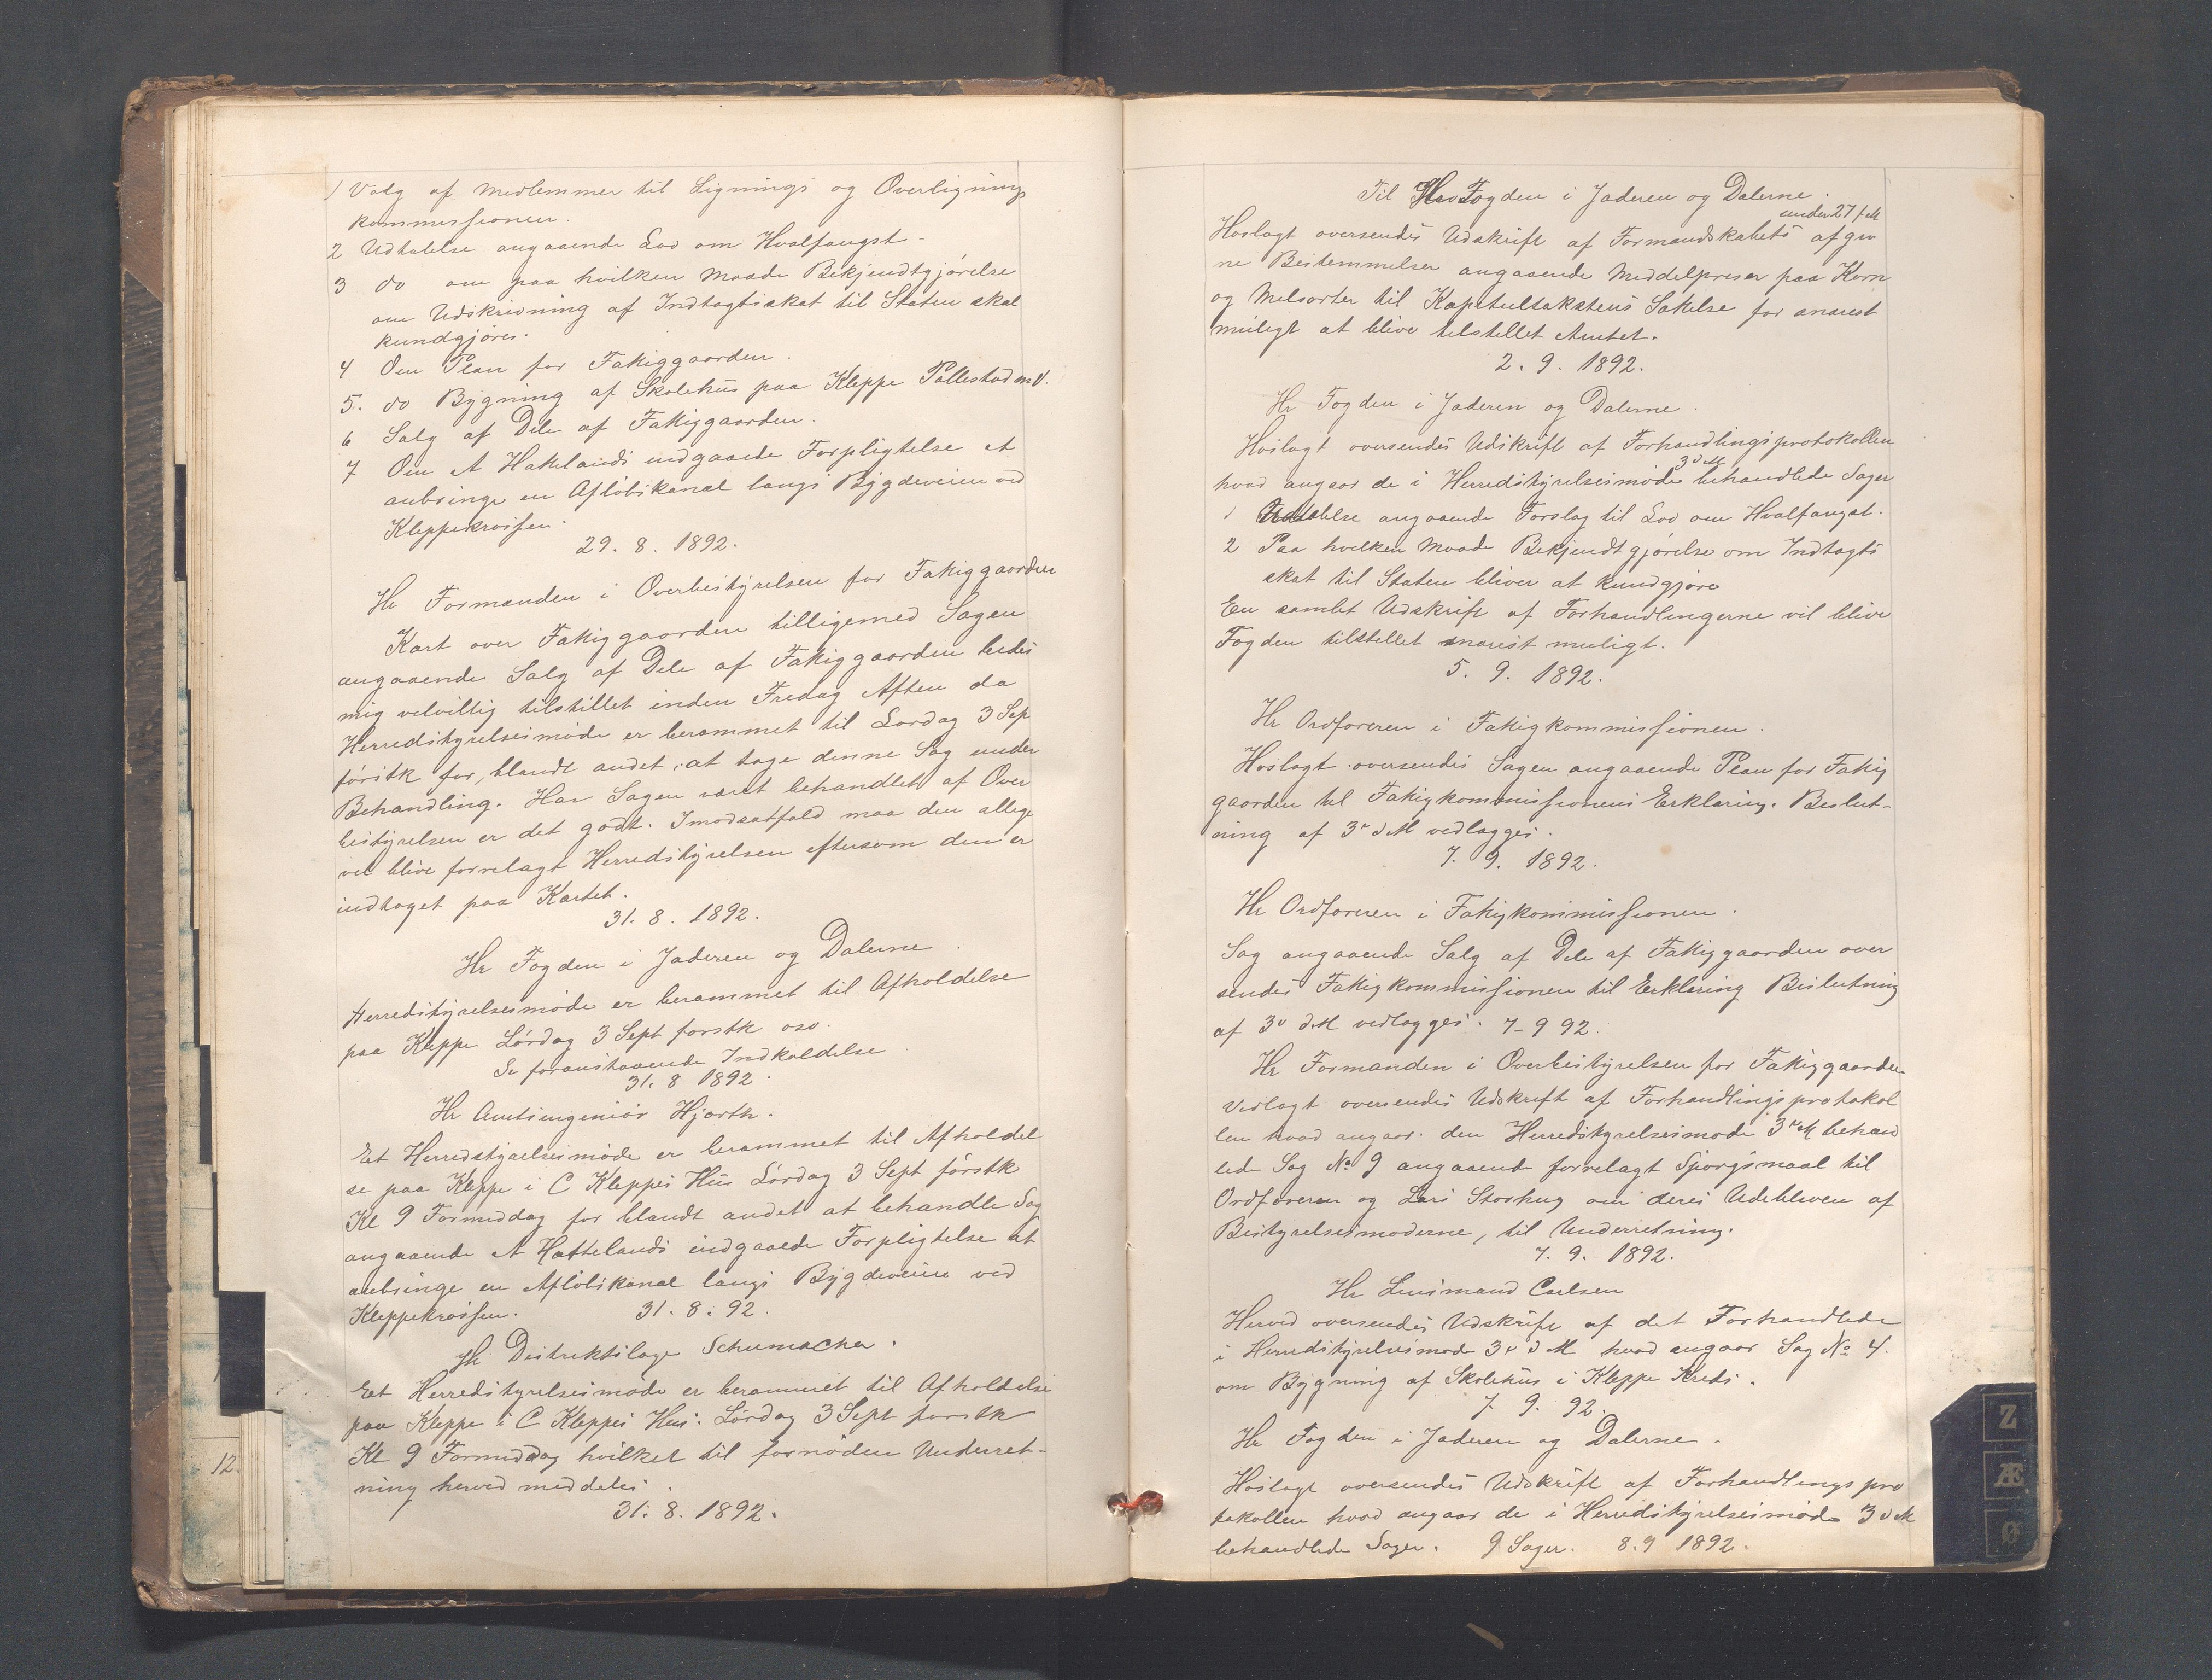 1 Valg af Medlemmer til Lignings og Overlignings
kommissionen.
2 Udtalelse angaaende Lov om Hvalfangst -
3 do om paa hvilken Maade Bekjendtgjørelse
om Udskrivning af Indtægtsskat til Staten skal
kundgjøres.
4 Om Plan for Fattiggaarden.
5. do Bygning af Skolehus paa Kleppe Pollestad m V.
6 Salg af Dele af Fattiggaarden.
7 Om A Hatelands indgaaede Forpligtelse at
anbringe en Afløbskanal langs Bygdeveien ved
Kleppekrossen.
29. 8. 1892.
Hr Formanden i Overbestyrelsen for Fattiggaarden
Kart over Fattiggaarden tilligemed Sagen
angaaende Salg af Dele af Fattiggaarden bedes
mig velvillig tilstillet inden Fredag Aften da
Herredstyrelsesmøde er berammet til Lørdag 3 Sep
førstk for, blandt andet, at tage denne Sag under
Behandling. Har Sagen været behandlet af Over
bestyrelsen er det godt. I modsatfald maa den allige
vel blive forrelagt Herredstyrelsen eftersom den er
indtaget paa Kartet.
31. 8. 1892.
Hr Fogden i Jæderen og Dalerne.
Herredstyrelsesmøde er berammet til Afholdelse
paa Kleppe Lørdag 3 Sept førstk osv.
Se foranstaaende Indkaldelse.
31. 8 1892.
Hr Amtsingeniør Hjorth.
Et Herredstyrelsesmøde er berammet til Afholdel
se paa Kleppe i C Kleppes Hus Lørdag 3 Sept førstk
Kl 9 Formiddag for blandt andet at behandle Sag
angaaende A Hattelands indgaaede Forpligtelse at
anbringe en Afløbskanal langs Bygdeveien ved
Kleppekrossen. 31. 8. 92.
Hr Distriktslæge Schumacher.
Et Herredstyrelsesmøde er berammet til Afholdelse
paa Kleppe i C Kleppes Hus. Lørdag 3 Sept førstk
Kl 9 Formiddag hvilket til fornøden Underret-
ning herved meddeles.
31. 8. 1892.
12.
Til Hr Fogden i Jæderen og Dalerne.
under 27 f M
Hoslagt oversendes Udskrift af Formandskabets afgiv
ne Bestemmelser angaaende Middelpriser paa Korn
og Melsorter til Kapitelstakstens Sættelse for snarest
muligt at blive tilstillet Amtet.
2. 9. 1892.
Hr Fogden i Jæderen og Dalerne.
Hoslagt oversendes Udskrift af Forhandlingsprotokollen
3 d M
hvad angaar de i Herredstyrelsesmøde behandlede Sager
1 Udtalelse angaaende Forslag til Lov om Hvalfangst.
2 Paa hvilken Maade Bekjendtgjørelse om Indtægts
skat til Staten bliver at kundgjøre
En samlet Udskrift af Forhandlingerne vil blive
Fogden tilstillet snarest muligt.
5. 9. 1892.
Hr Ordføreren i Fattigkommissionen.
Hoslagt oversendes Sagen angaaende Plan for Fattig
gaarden til Fattigkommissionens Erklæring. Beslut-
ning af 3r d M vedlægges.
7. 9. 1892.
Hr Ordføreren i Fattigkommissionen.
Sag angaaende Salg af Dele af Fattiggaarden over
sendes Fattigkommissionen til Erklæring Beslutning
af 3d d M vedlægges. 7-9 92.
Hr Formanden i Overbestyrelsen for Fattiggaarden
Vedlagt oversendes Udskrift af Forhandlingsprotokol
len hvad angaar den Herredstyrelsesmøde 3 d M behand
lede Sag No 9 angaaende forrelagt Spørgsmaal til
Ordføreren og Lars Storhug om deres Udebliven af
Bestyrelsesmøderne, til Underretning.
7. 9. 1892.
Hr Lensmand Carlsen
Herved oversendes Udskrift af det Forhandlede
i Herredstyrelsesmøde 3r d M hvad angaar Sag No 4.
om Bygning af Skolehus i Kleppe Kreds.
7. 9. 92.
Hr Fogden i Jæderen og Dalerne.
Hoslagt oversendes Udskrift af Forhandlingspro
tokollen hvad angaar de i Herredstyrelsesmøde 3 d M
behandlede Sager. 9 Sager. 8. 9 1892.
Z
Æ
Ø